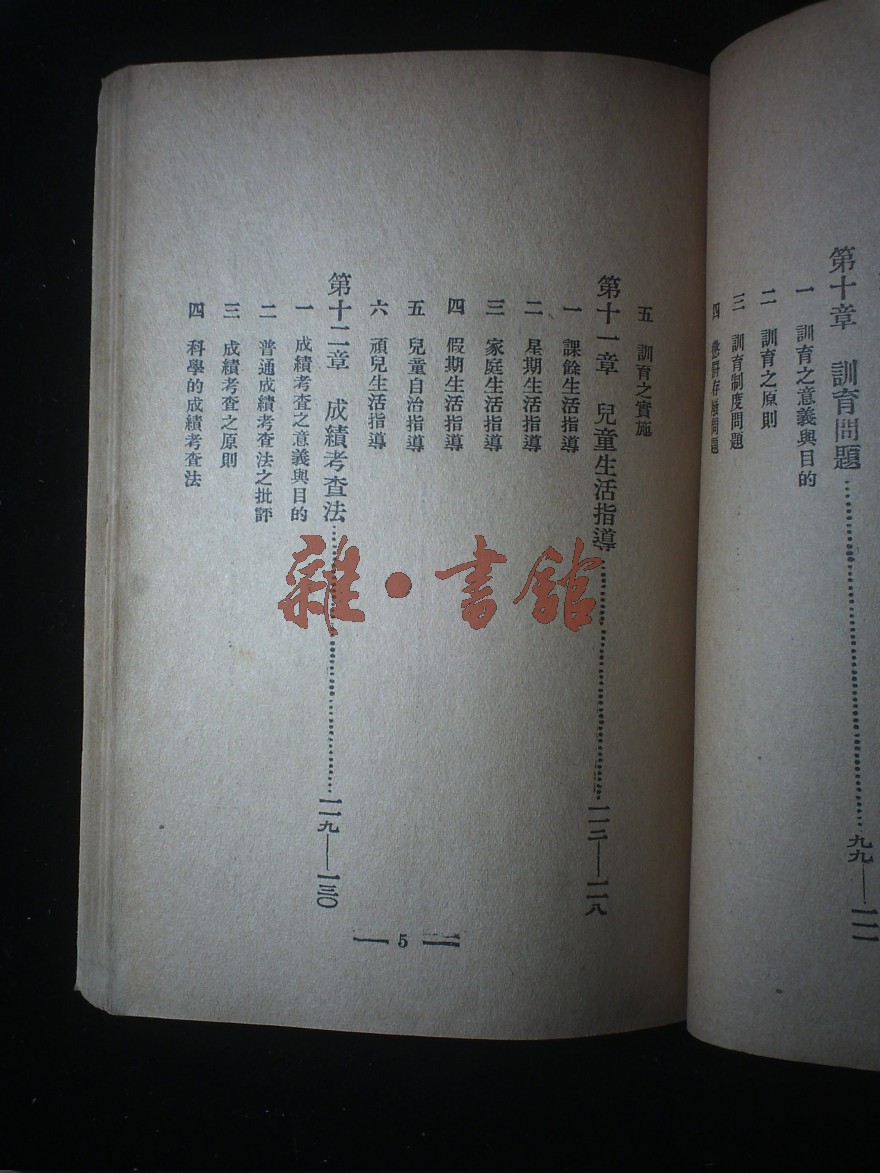 第十章　訓育問題……………………九九—一一一
一　訓育之意義與目的
二　訓育之原則
三　訓育制度問題
四　懲罰存廢問題
五　訓育之實施
第十一章　兒童生活指導……………………一一二—一一八
一　課餘生活指導
二　星期生活指導
三　家庭生活指導
四　假期生活指導
五　兒童自治指導
六　頑兒生活指導
第十二章　成績考查法……………………一一九—一三〇
一　成績考查之意義與目的
二　普通成績考查法之批評
三　成績考查之原則
四　科學的成績考查法
5
雜·書館